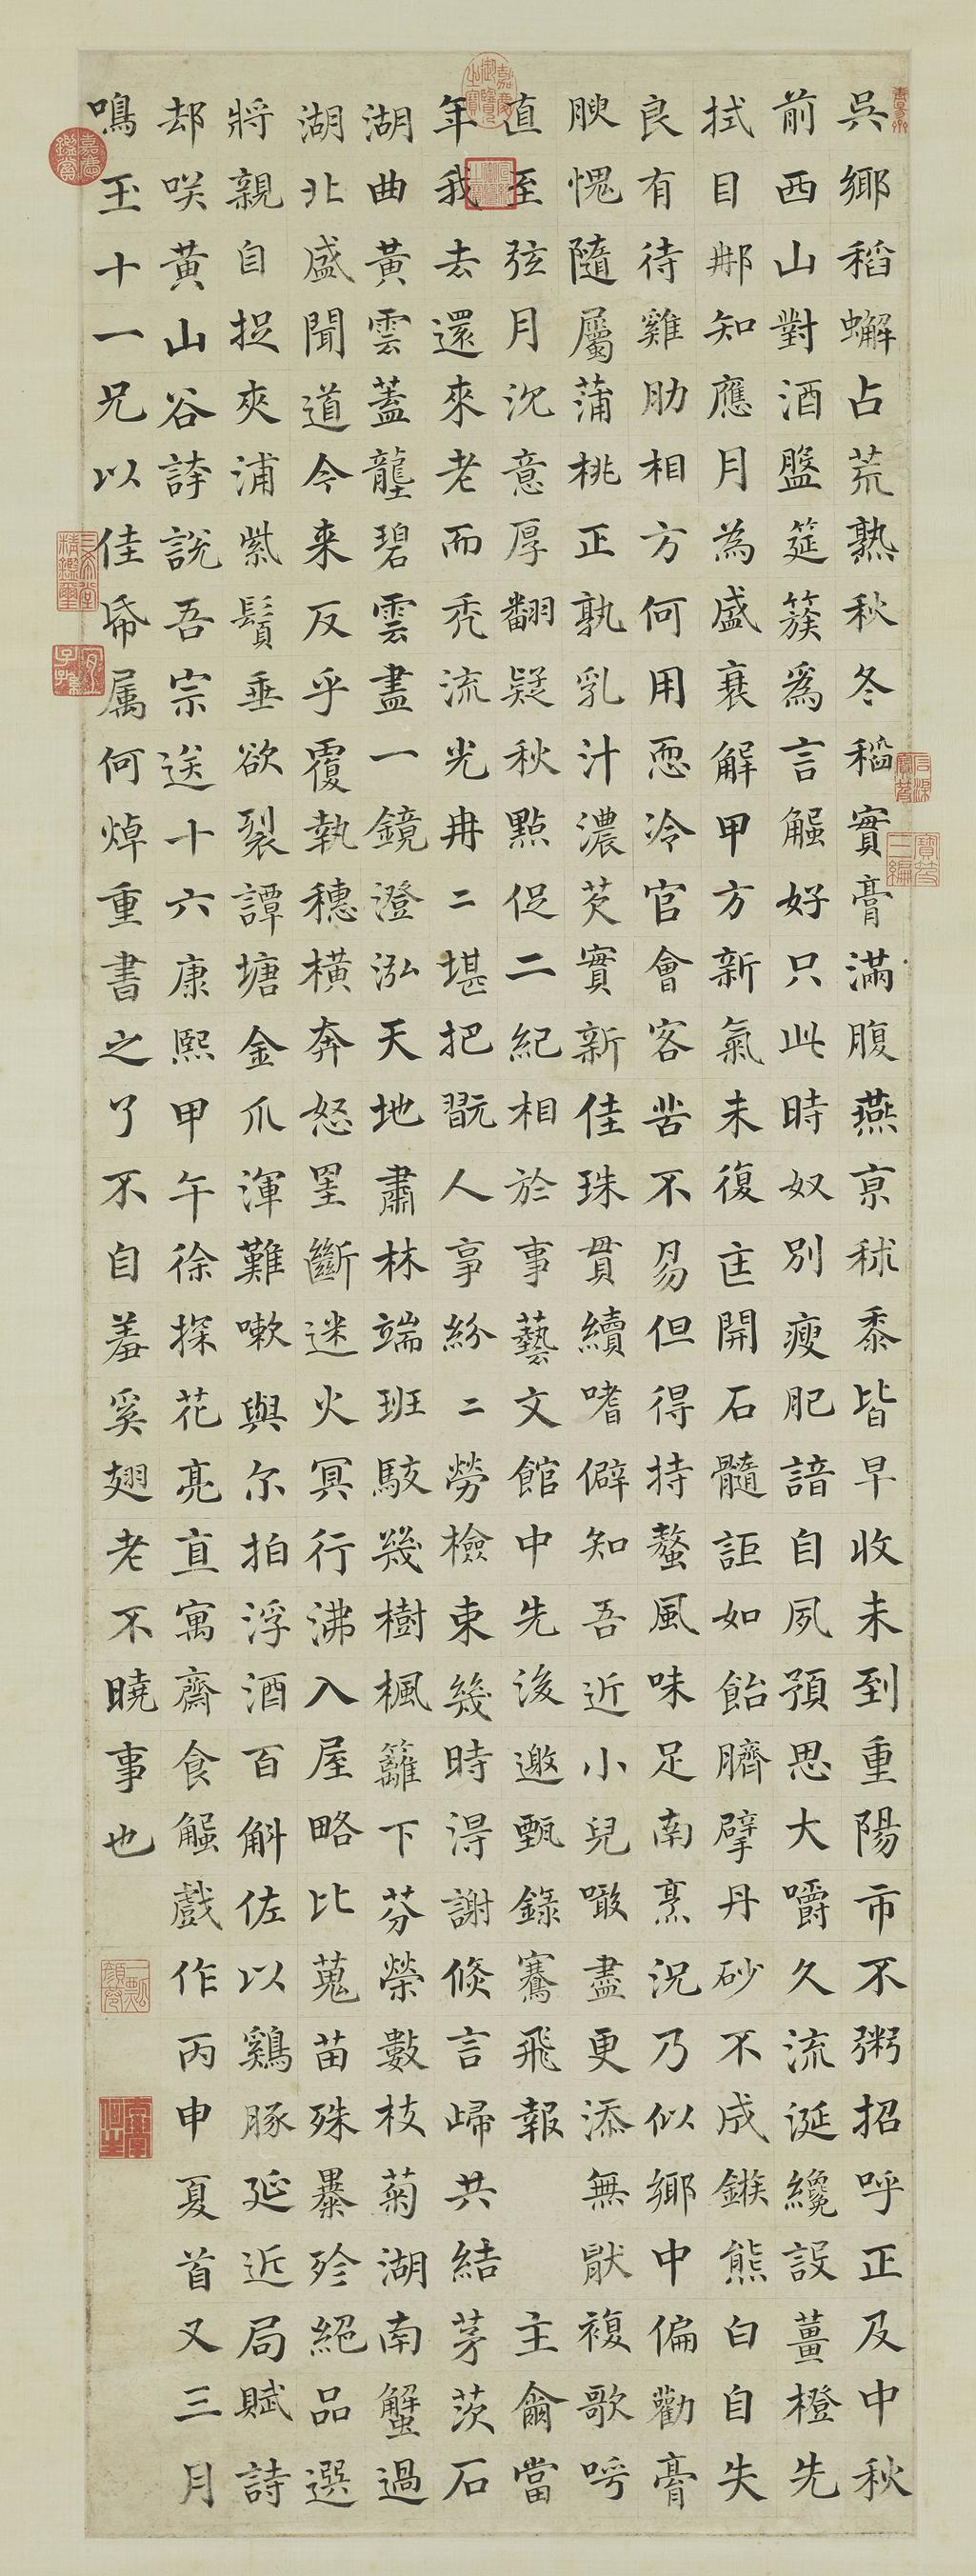 吳鄉稻蠏占荒熟秋冬稻實膏滿腹燕京秫黍皆早收未到重陽市不粥招呼正及中秋
前西山對酒盤筵簇爲言觸好只此時奴別瘦肥諳自夙預思大嚼久流涎纔設薑橙先
拭目郍知應月為盛衰解甲方新氣未復匡開石髓詎如飴臍擘丹砂不成鏃熊白自失
良有待雞肋相方何用惡冷官會客苦不易但得持螯風味足南烹況乃似鄉中偏勸膏
腴愧隨屬蒲桃正孰乳汁濃芡實新佳珠貫續嗜僻知吾近小兒噉盡更添無猒複歌呼
直至弦月沉意厚翻疑秋點促二紀相於事藝文館中先後邀甄錄騫飛報主龠當
年我去還來老而禿流光冉二堪把翫人事紛二勞檢束幾時得謝倐言歸共結茅茨石
湖曲黃雲蓋壟碧雲盡一鏡澄泓天地肅林端班駮幾樹楓籬下芬榮數枝菊湖南蟹過
湖北盛聞道今来反乎覆執穗橫奔怒罣斷迷火冥行沸入屋略比蒐苗殊暴殄絕品選
將親自捉夾浦紫鬚垂欲裂譚塘金爪渾難嗽與尔拍浮酒百斛佐以鷄豚延近局賦詩
却咲黃山谷誇說吾宗送十六康熙甲午徐探花亮直寓齋食觸戲作丙申夏首又三月
鳴玉十一兄以佳帋属何焯重書之了不自羞奚翅老不曉事也